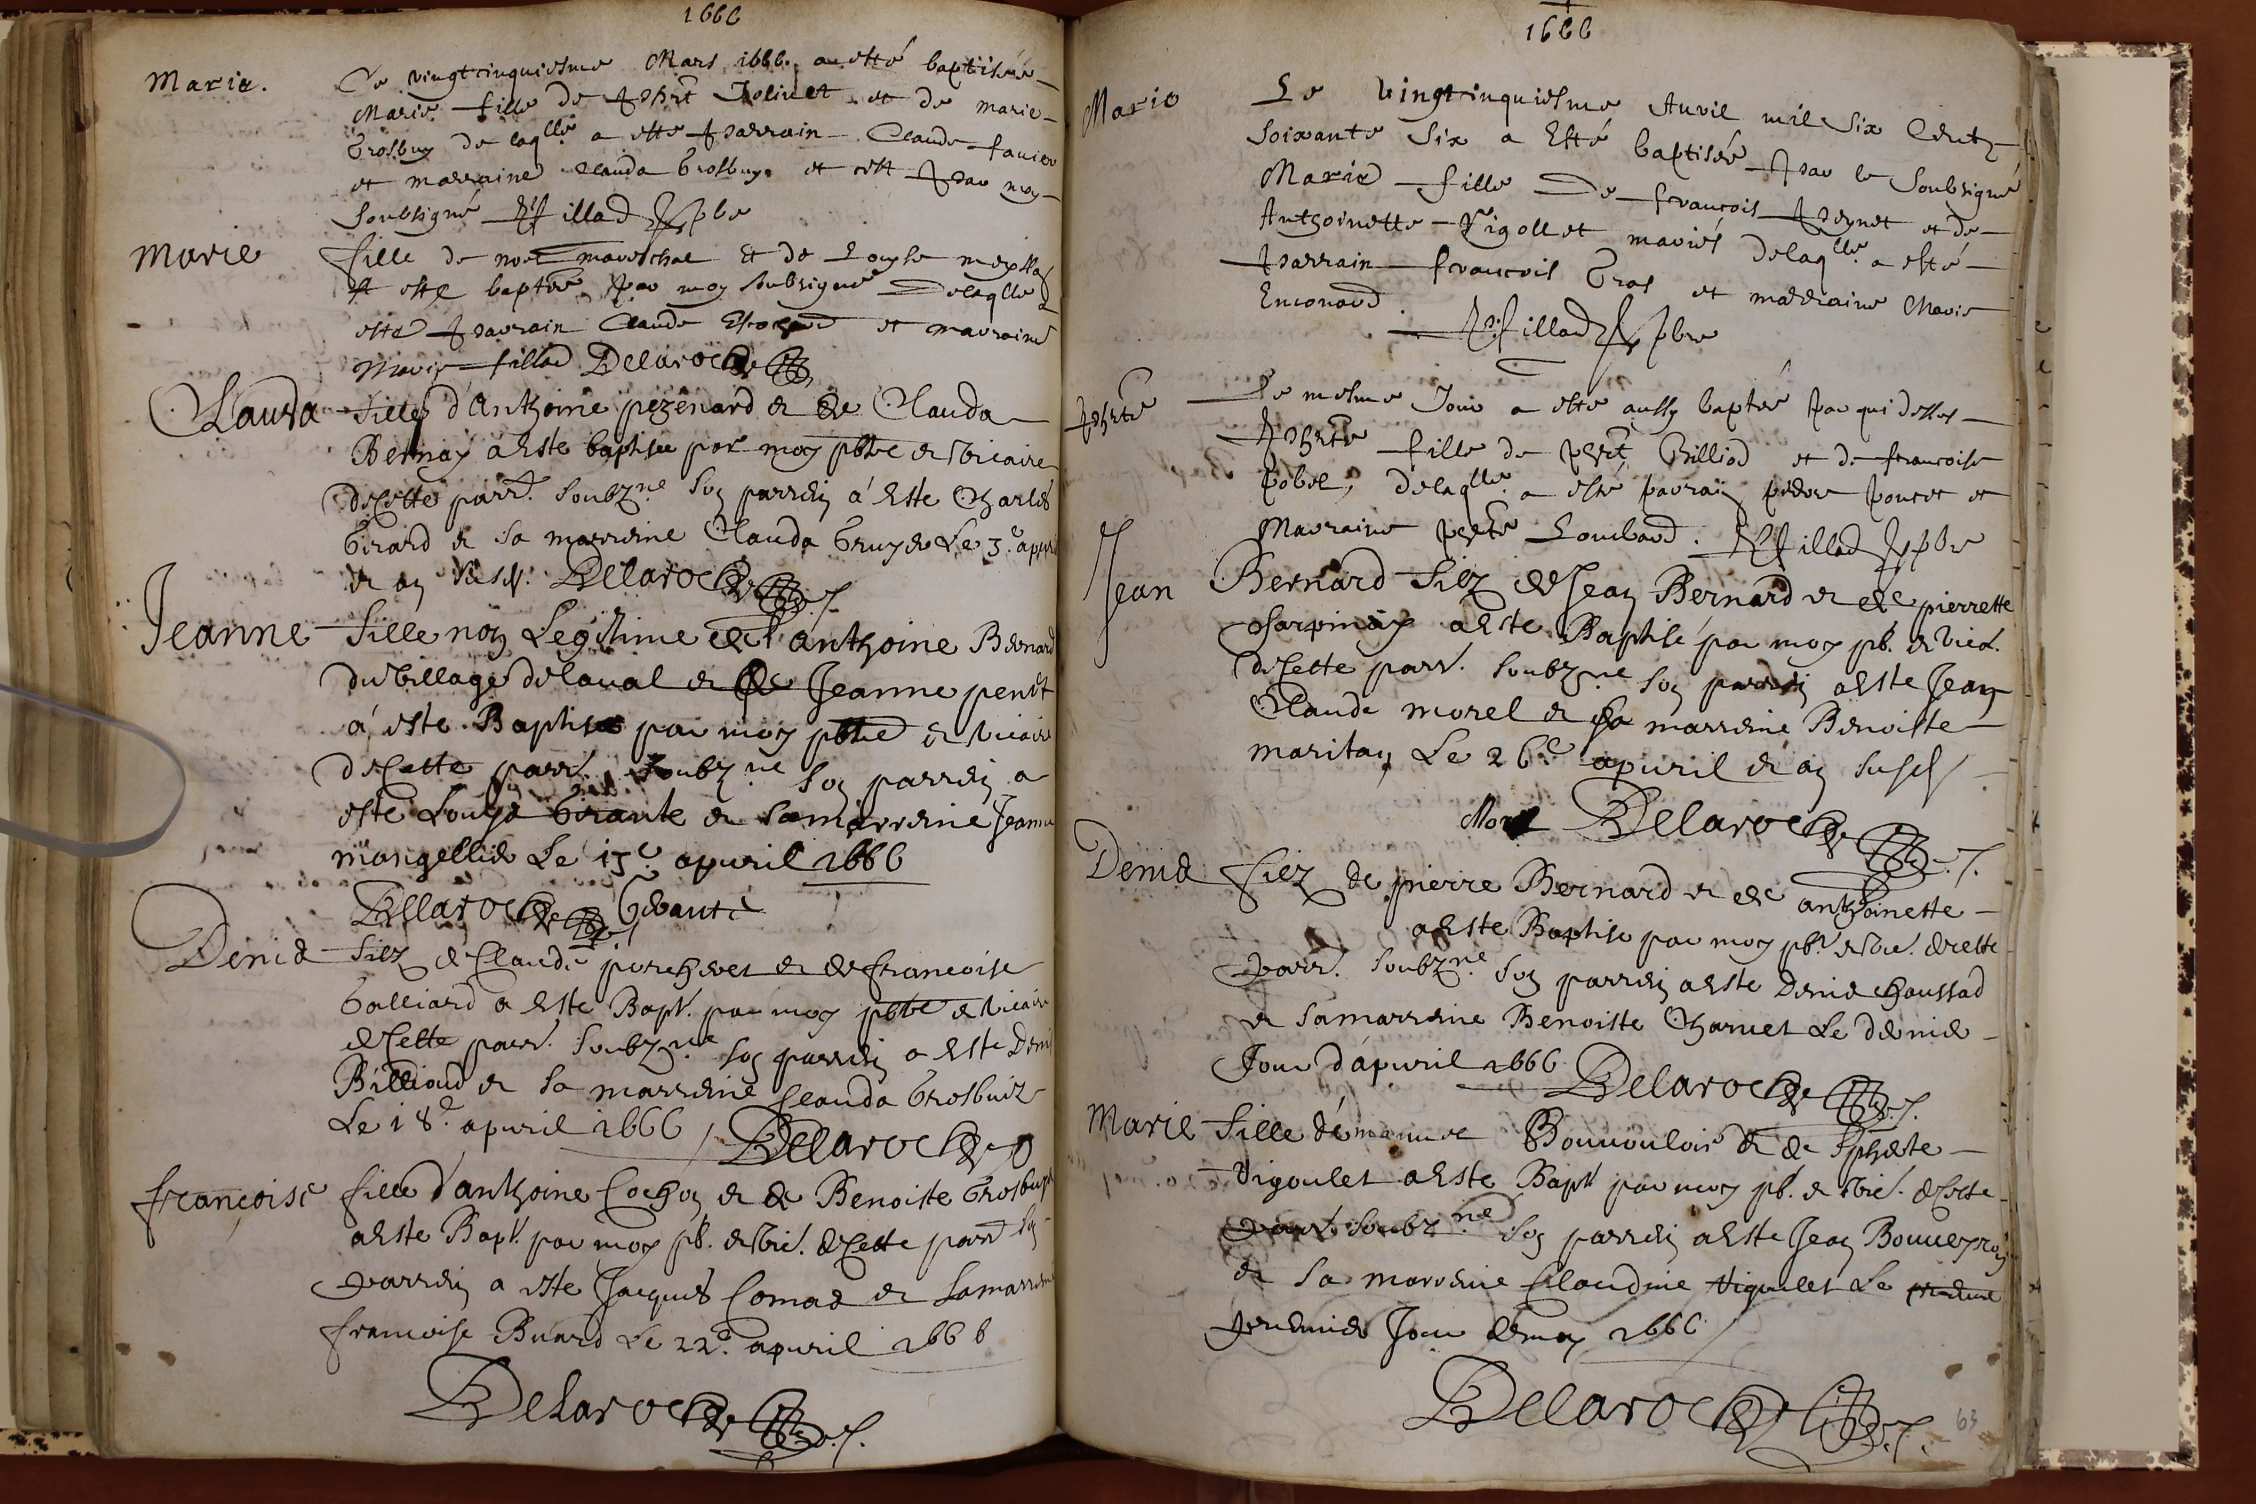 1666
Maria.
Ce vingtcinquiesme Mars 1666. a esté baptisée
Marie fille de Phért Jolivet et de marie
Grosbuy de laqlle a este parrain Claude favier
et marraine Clauda Grosbuy. et cest par moy
soubsigné Fillad pbre
Marie
fille de noel mareschal et de Louyse
A este baptée par moy soubsigné delaqlle a
esté parrain Claude et marraine
Marie fillad Delaroche
Clauda
fille d'Anthoine pezenard & de Clauda
Bernay a este baptisee par moy pbtre & vicaire
de cette parr. soubzne son parrein a este Charles
Girard & sa marreine Clauda Gruyer Le 3e apuril
& an susd. Delaroche
Jeanne
fille non Legitime de anthoine Bernard
du village de laval & de Jeanne penet
a este Baptisee par moy pbtre & vicaire
de cette parr. soubzne son parrein a
este Louys Girante & sa marreine Jeanne
mangellier Le 15e apuril 1666
Delaroche Girante
Denis
filz de Claude porcheret & de francoise
Galliard a este Bapt. par moy pbtre & vicaire
de Cette parr. soubzne son parrein a este Denis
Billioud & sa marreine Clauda Grosbuiz
Le 18e apuril 1666 Delaroche
françoise
fille d'anthoine Cochon & de Benoiste Grosbuys
a este Bapt. par moy pb. & vic. de Cette parr son
parrein a este Jacques Comas & sa marreine
francoise Buard Le 22e apuril 1666
Delaroche
1666
Marie
Le vingtcinquiesme Auril mil six Centz
soixante six a Esté baptisée par le soubsigné
Marie fille de francois Peynet et de
Anthoinette Vigollet mariés delaqlle a esté
parrain francois Gras et marraine Marie
Enconard.
Fillad pbre
Phérte
Le mesme Jour a esté aussy baptée par qui dessus
Phérte fille de phért Billiod et de francoise
pobel, delaqlle a esté parrain pierre poncet et
Marraine phérte Lombard. Fillad pbre
Jean
Bernard filz de Jean Bernard & de pierrette
Charpinay a este Baptisé par moy pb. & vica.
de Cette parr. soubzne son parrein a este Jean
Claude morel & sa marreine Benoiste
maritan Le 26e apuril & an susd
Morel Delaroche
Denis
filz de pierre Bernard & de anthoinette
a este Baptise par moy pbr & vic. de cette
parr. soubzne son parrein a este Denis chaussad
& sa marreine Benoiste Charvet Le dernier
Jour d'apuril 1666 Delaroche
Marie
fille d'emanuel Bonvouloir & de Pherte
vigoulet a este Bapt par moy pb. & vic. de Cette
parr. soubzne son parrein a este Jean Bouveyron
& sa marreine Claudine vigoulet Le
premier Jour de may 1666
Delaroche
63